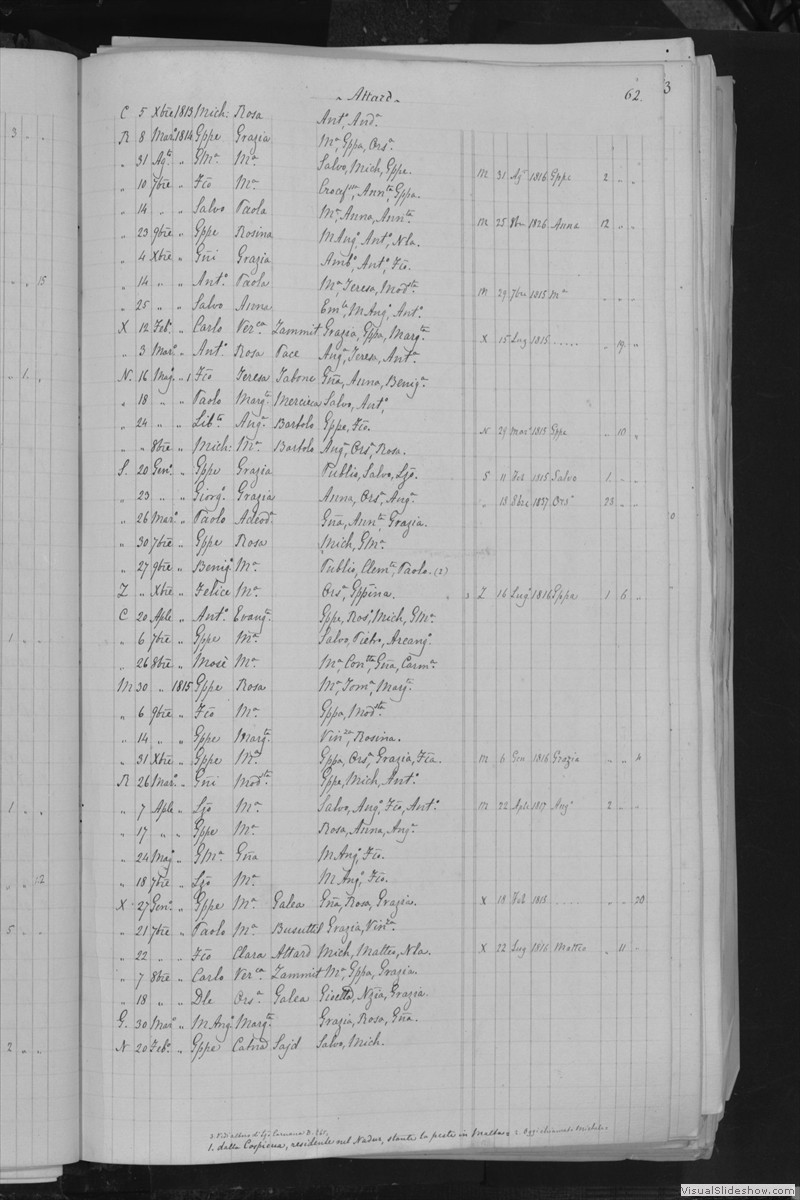 „ Attard „ 62. 3
C 5 Xbre 1813 Mich: Rosa Ant.º And.ª
R 8 Mar.º 1814 Gppe Grazia M.ª, Gppa, Ors.ª
„ 31 Ag.to „ GM.ª M.ª Salvo, Mich, Gppe. M 31 Ag.º 1816 Gppe 2 „ „
„ 10 7bre „ Fco M.ª Ann.ta, Gppa.
„ 14 „ „ Salvo Paola M.ª, Anna, Ann.ta M 25 1826 Anna 12 „ „
„ 23 9bre „ Gppe Rosina MAng.º, Ant.º, Nla.
„ 4 Xbre „ Gni Grazia Amb.º, Ant.º, Fco.
„ 14 „ „ Ant.º Paola M.ª, Teresa, Mod.sta M 29 7bre 1815 M.ª „ „ „
„ 25 „ „ Salvo Anna Em.la, MAng.º, Ant.º
X 12 Feb.º „ Carlo Ver.ca Zammit Grazia, Gppa, Marg.ta X 15 Lug 1815 . . . . . „ 19 „
„ 3 Mar.º „ Ant.º Rosa Pace Ang.ª, Teresa, Ant.ª
N. 16 Mag.º „ 1 Fco Teresa Tabone Gña, Anna, Benig.ª
„ 18 „ „ Paolo Marg.ta Mercieca Salvo, Ant.º
„ 24 „ „ Lib.to Ang.ª Bartolo Gppe, Fco. N 29 Mar.º 1815 Gppe „ 10 „
„ „ 8bre „ Mich: M.ª Bartolo Aug.ª, Ors.ª, Rosa.
S. 20 Gen.º „ Gppe Grazia Publio, Salvo, Lzo. S 11 Feb 1815 Salvo 1 „ „
„ 23 „ „ Giorg.º Grazia Anna, Ors.ª, Ang.ª „ 18 8bre 1837 Ors.ª 23 „ „
„ 26 Mar.º „ Paolo Adeod.ª Gña, Ann.ta, Grazia.
„ 30 7bre „ Gppe Rosa Mich, GM.ª
„ 27 9bre „ Benig.º M.ª Publio, Clem.te, Paolo. (2)
Z „ Xbre „ Felice M.ª Ors.ª, Gppina. „ 3 Z 16 Lug 1816 Gppa 1 6 „
C 20 Aple „ Ant.º Evang.ª Gppe, Ros.º, Mich, GM.ª
„ 6 7bre „ Gppe M.ª Salvo, Pietro, Arcang.º
„ 26 8bre „ Mosè M.ª M.ª, Con.tta, Gña, Carm.ª
M 30 „ 1815 Gppe Rosa M.ª, Tom.ª, Marg.ta
„ 6 9bre „ Fco M.ª Gppa, Mod.sta
„ 14 „ „ Gppe Marg.ta Vin.za, Rosina.
„ 31 Xbre „ Gppe M.ª Gppa, Ors.ª, Grazia, Fca. M 6 Gen 1816 Grazia „ „ 4
R 26 Mar.º „ Gni Mod.sta Gppe, Mich, Ant.º
„ 7 Aple „ Lzo M.ª Salvo, Ang.º, Fco, Ant.º M 22 Aple 1817 Ang.º 2 „ „
„ 17 „ „ Gppe M.ª Rosa, Anna, Ang.ª
„ 24 Mag.º „ GM.ª Gña MAng.º, Fco.
„ 18 7bre „ Lzo M.ª MAng.º, Fco.
X 27 Gen.º „ Gppe M.ª Galea Gña, Rosa, Grazia. X 18 Feb 1815 . . . . „ „ 20
„ 21 7bre „ Paolo M.ª Busuttil Grazia, Vin.za
„ 22 „ „ Fco Clara Attard Mich, Matteo, Nla. X 22 Lug 1816 Matteo „ 11 „
„ 7 8bre „ Carlo Ver.ca Zammit M.ª, Gppa, Grazia.
„ 18 „ „ Dle Ors.ª Galea Nzia, Grazia.
G. 30 Mar.º „ MAng.º Marg.ta Grazia, Rosa, Gña.
N 20 Feb.º „ Gppe Catna Sajd Salvo, Mich.
3 Vedi albero di Lzo Caruana
1. dalla Cospicua, residente nel Nadur, stante la peste in Malta. 2. Oggi chiamati Michele
VisualSlideshow.com